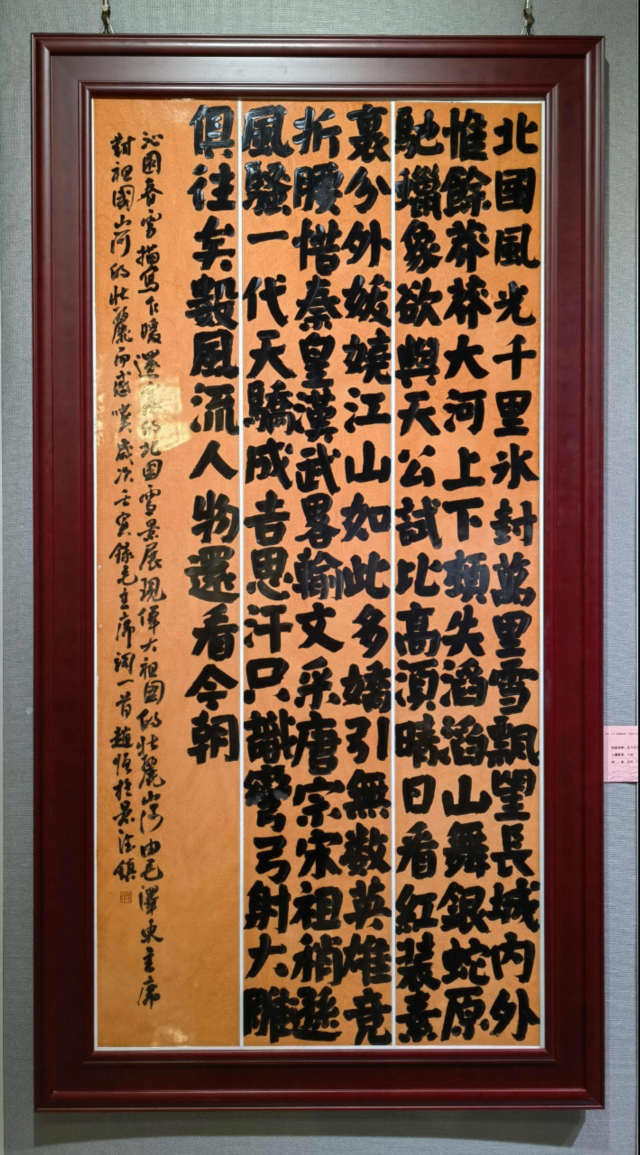 北國風光千里氷封萬里雪飄望長城内外
惟餘莽莽大河上下頓失滔滔山舞銀蛇原
馳蠟象欲與天公試比高須晴日看紅装素
裹分外妖嬈江山如此多嬌引無数英雄竞
折腰惜秦皇漢武畧輸文采唐宗宋祖稍遜
風騷一代天驕成吉思汗只識彎弓射大雕
俱往矣數風流人物還看今朝
沁園春雪描寫乍暖還寒的北国雪景展現偉大祖国的壯麗山河由毛澤東主席
對祖國山河的壯麗而感嘆歲次壬寅錄毛主席词一首趙恒於景德鎮